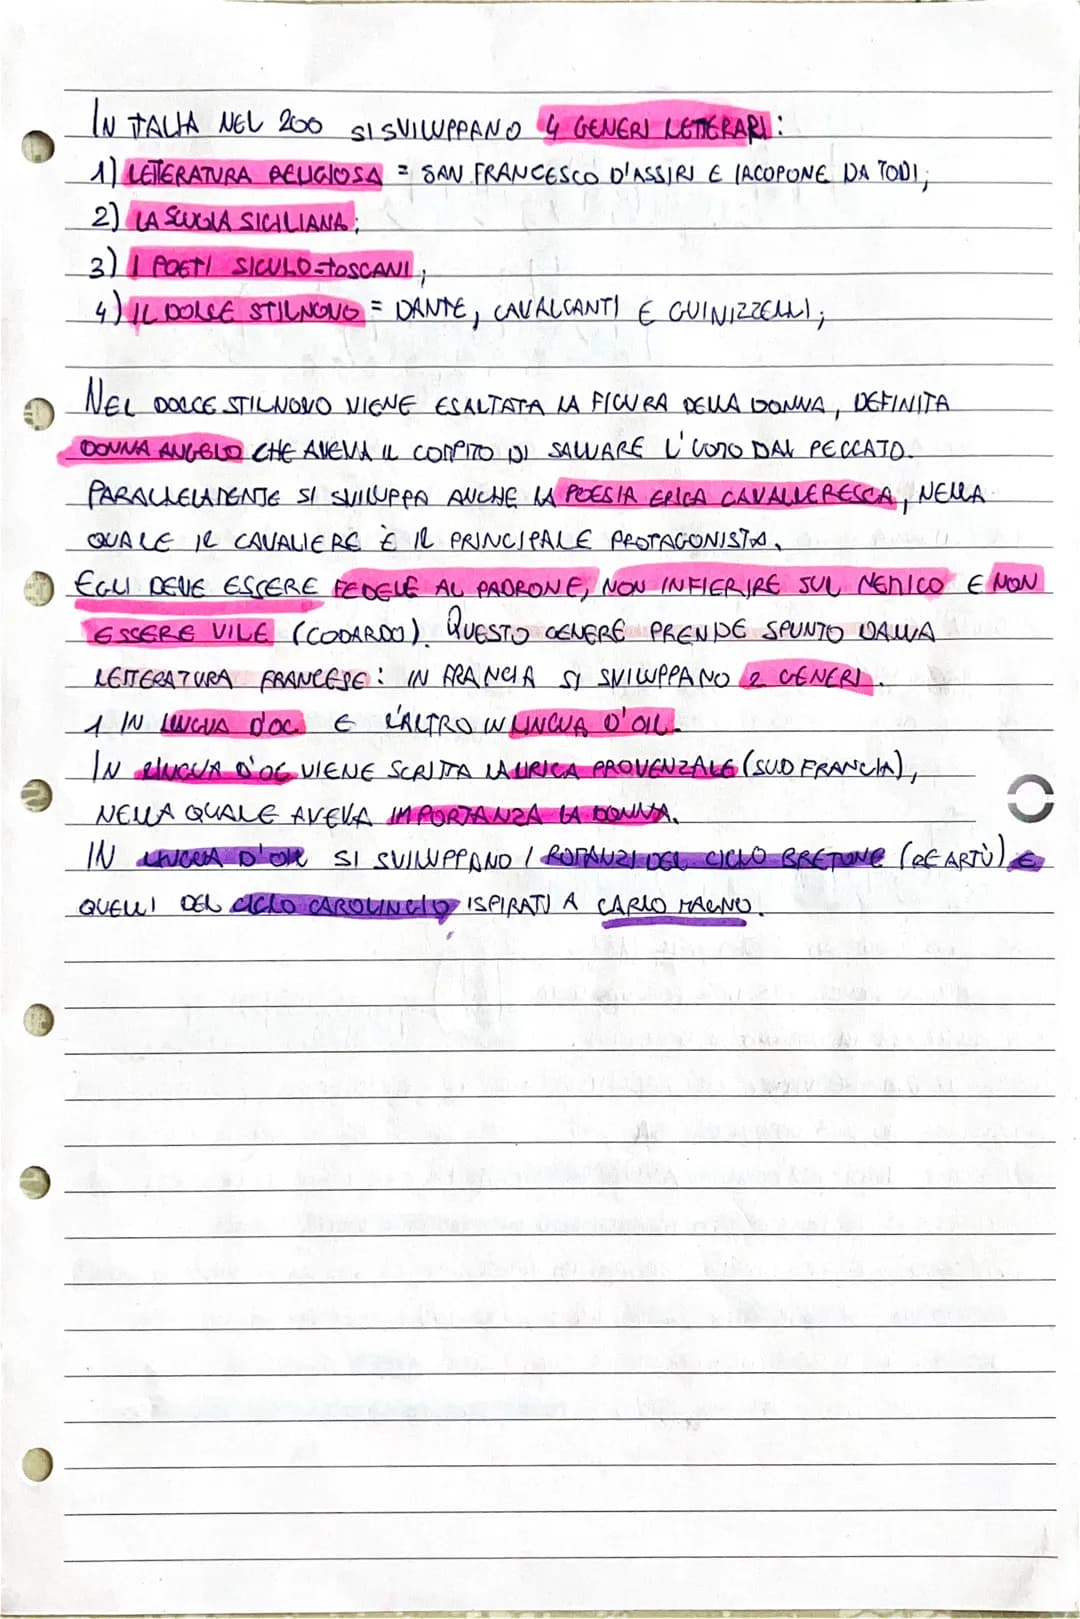 IN ITALIA NEL 200 SI SVILUPPANO 4 GENERI LETTERARI:
1) LETTERATURA RELIGIOSA = SAN FRANCESCO D'ASSIRI E IACOPONE DA TODI;
2) LA SCUOLA SICILIANA;
3) I POETI SICULO-TOSCANI;
4) IL DOLCE STILNOVO = DANTE, CAVALCANTI E GUINIZZELLI;
NEL DOLCE STILNOVO VIENE ESALTATA LA FIGURA DELLA DONNA, DEFINITA
DONNA ANGELO CHE AVEVA IL COMPITO DI SALVARE L'UOMO DAL PECCATO.
PARALLELAMENTE SI SVILUPPA ANCHE LA POESIA EPICA CAVALLERESCA, NELLA
QUALE IL CAVALIERE È IL PRINCIPALE PROTAGONISTA.
EGLI DEVE ESSERE FEDELE AL PADRONE, NON INFIERIRE SUL NEMICO E NON
ESSERE VILE (CODARDO). QUESTO GENERE PRENDE SPUNTO DALLA
LETTERATURA FRANCESE: IN FRANCIA SI SVILUPPANO 2 GENERI.
1 IN LINGUA D'OC E L'ALTRO IN LINGUA D'OIL.
IN LINGUA D'OC VIENE SCRITTA LA LIRICA PROVENZALE (SUD FRANCIA),
NELLA QUALE AVEVA IMPORTANZA LA DONNA.
IN LINGUA D'OIL SI SVILUPPANO I ROMANZI DEL CICLO BRETONE (RE ARTÙ) E
QUELLI DEL CICLO CAROLINGIO ISPIRATI A CARLO MAGNO.